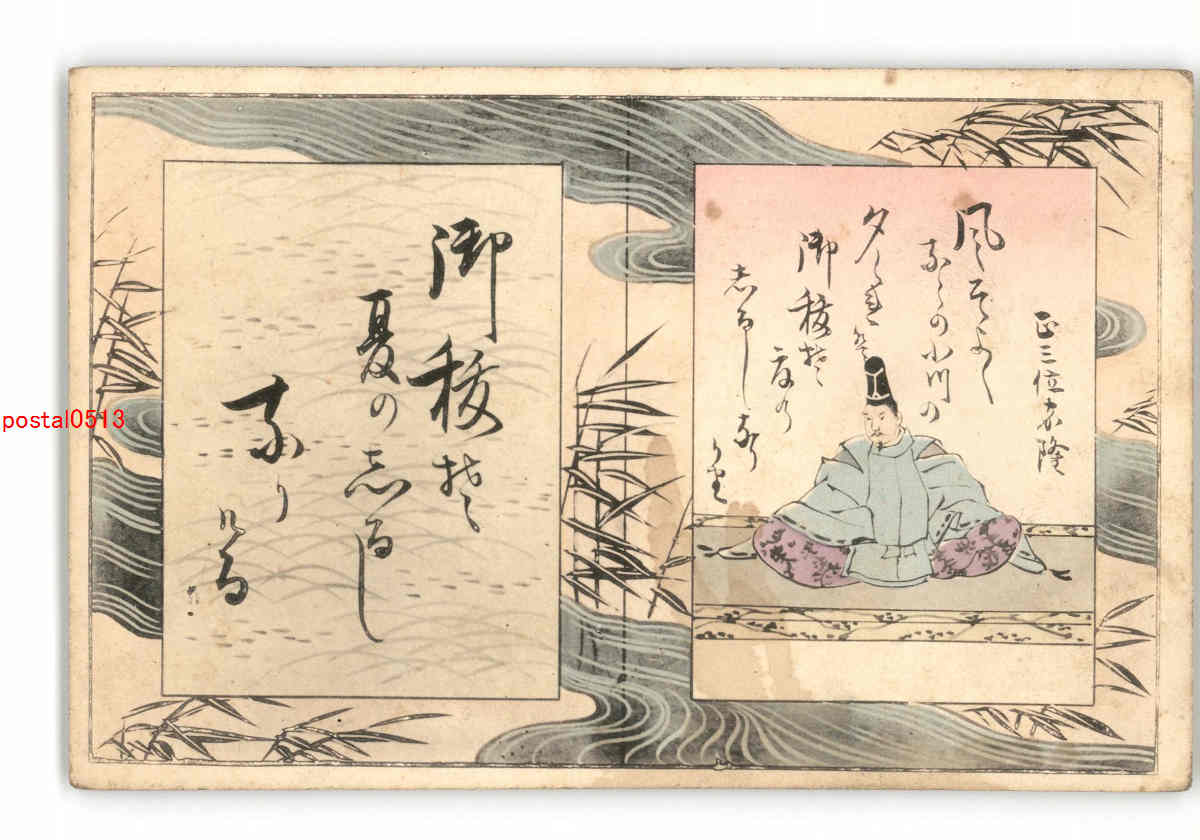 正三位家隆
風そよく
ならの小川の
夕くれは
御秡そ
夏の
志るしなり
ける
御秡そ
夏の志るし
なり
ける
postal0513